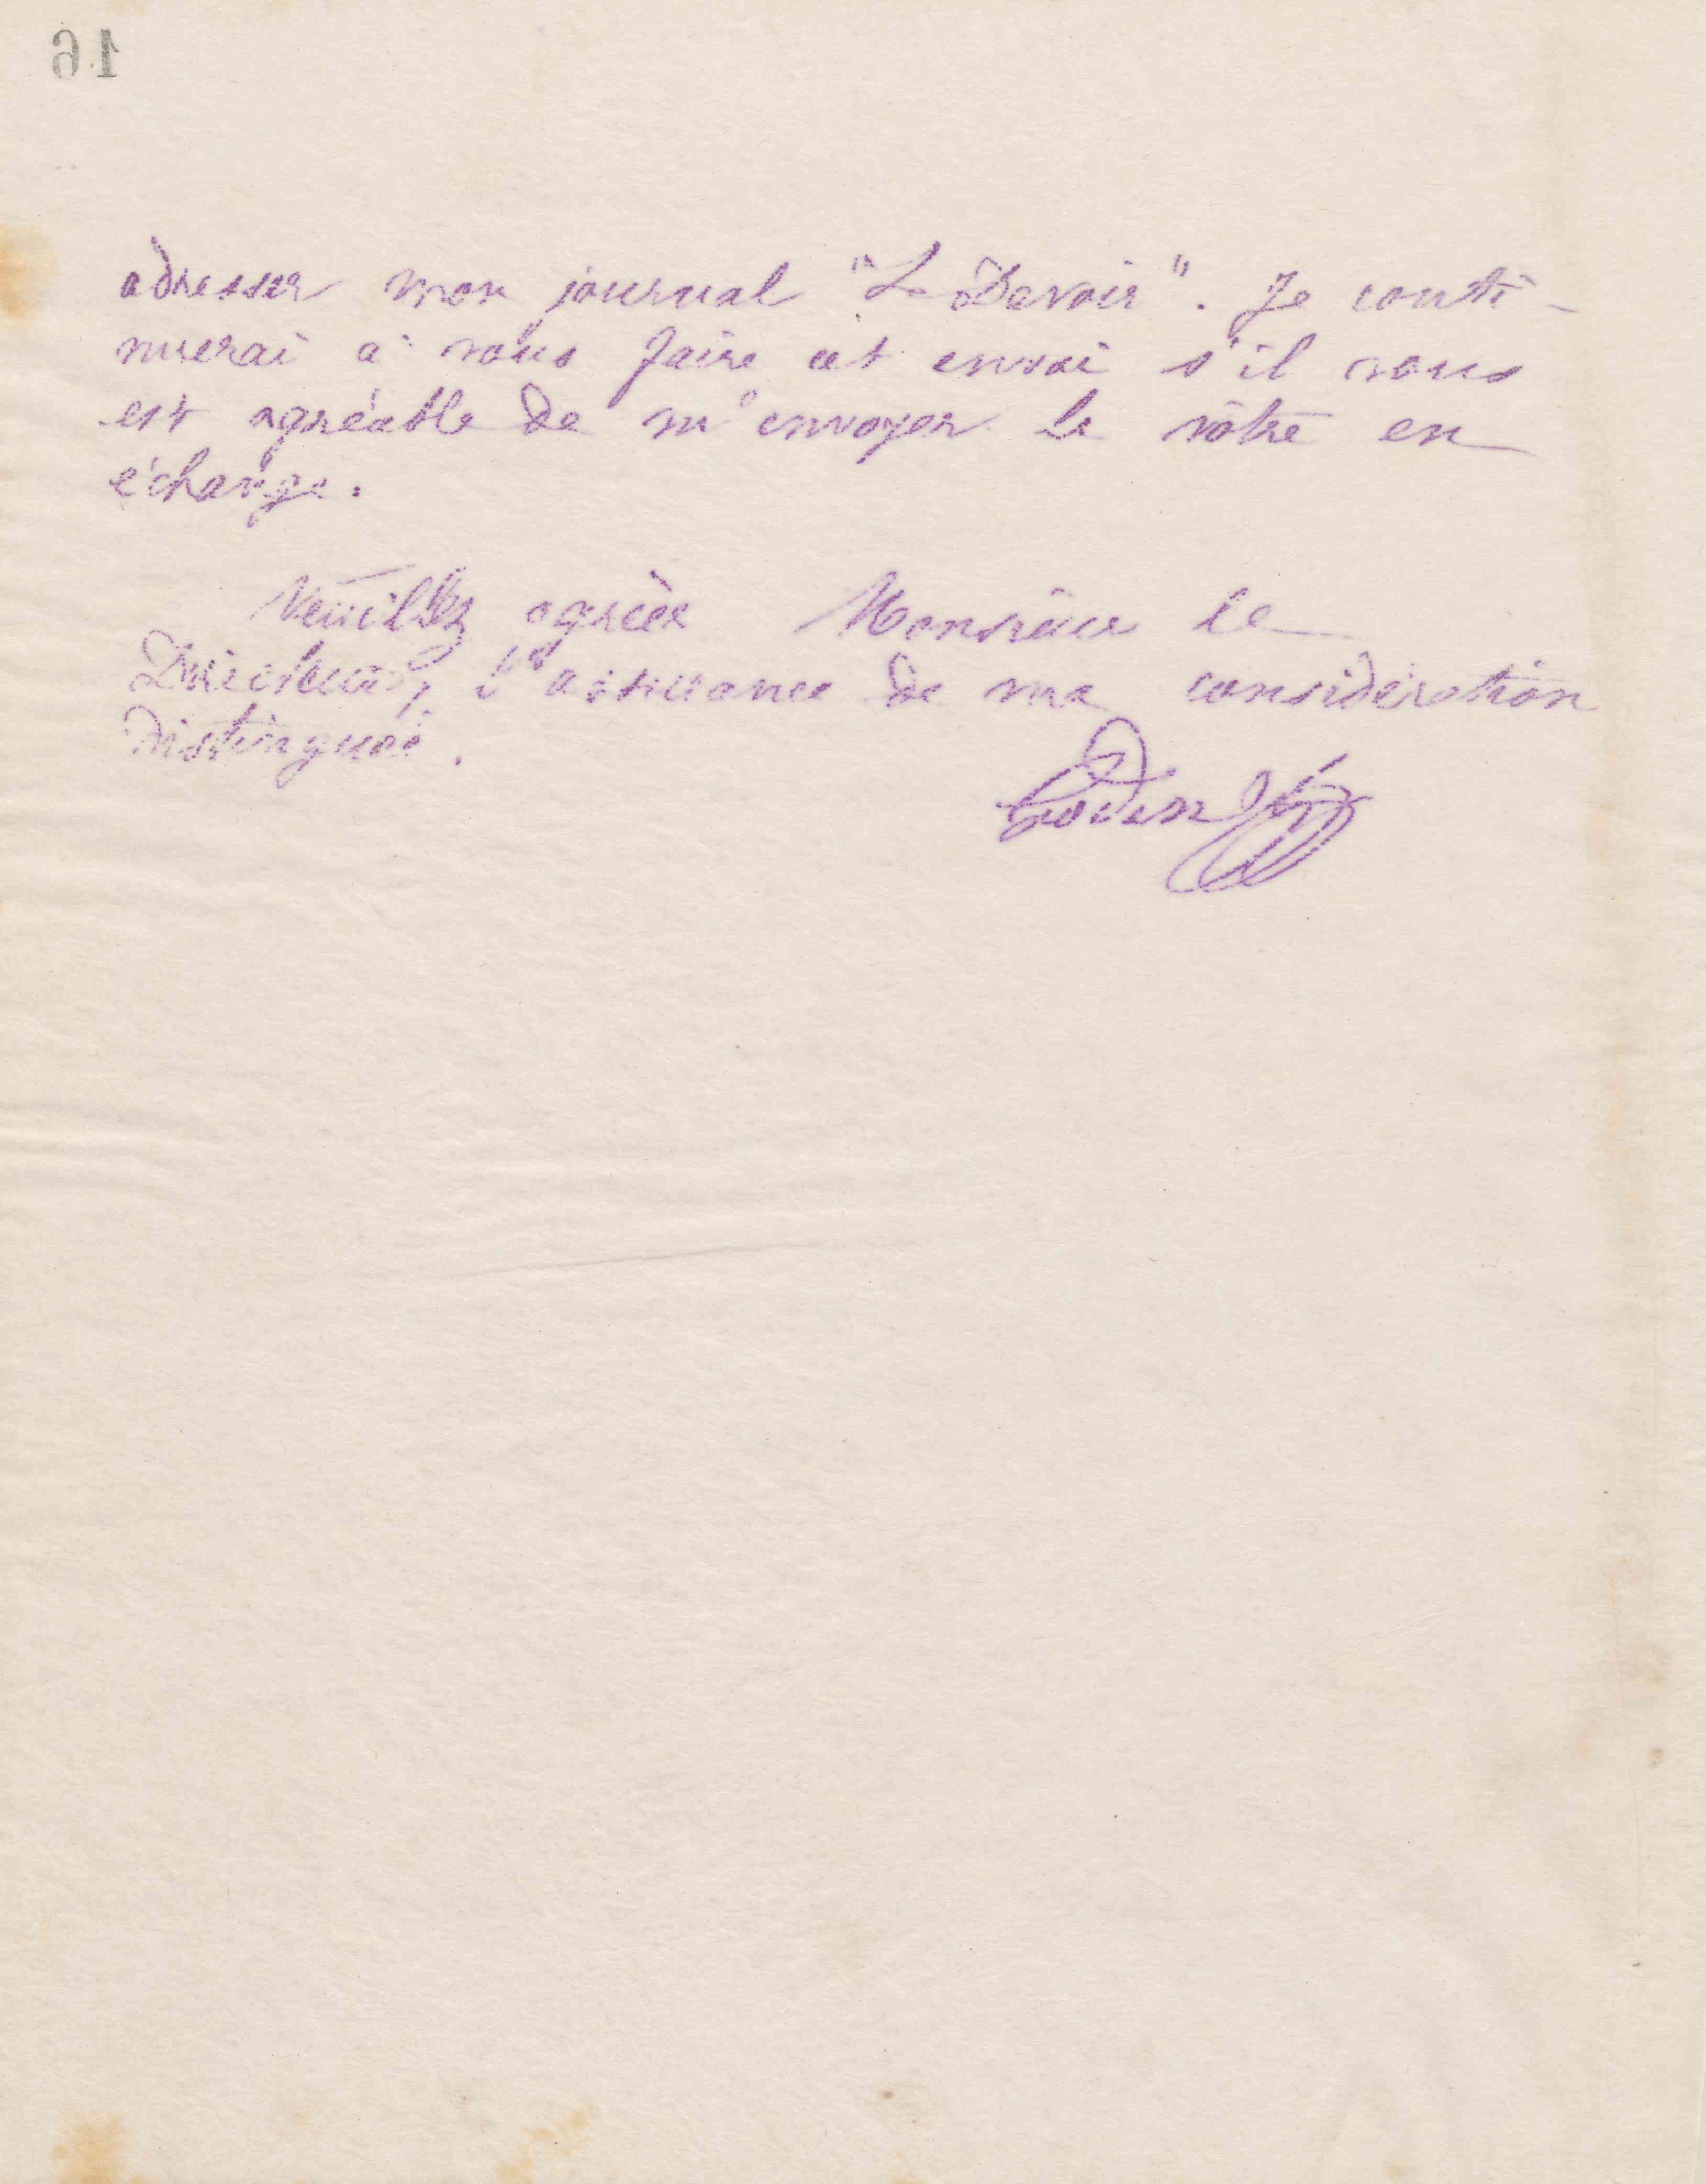 16
adresser mon journal "Le Devoir". Je conti-
nuerai à vous faire cet envoi s'il vous
est agréable de m'envoyer le vôtre en
échange.
Veuillez agréer Monsieur le
Directeur, l'assurance de ma considération
distinguée.
Godin